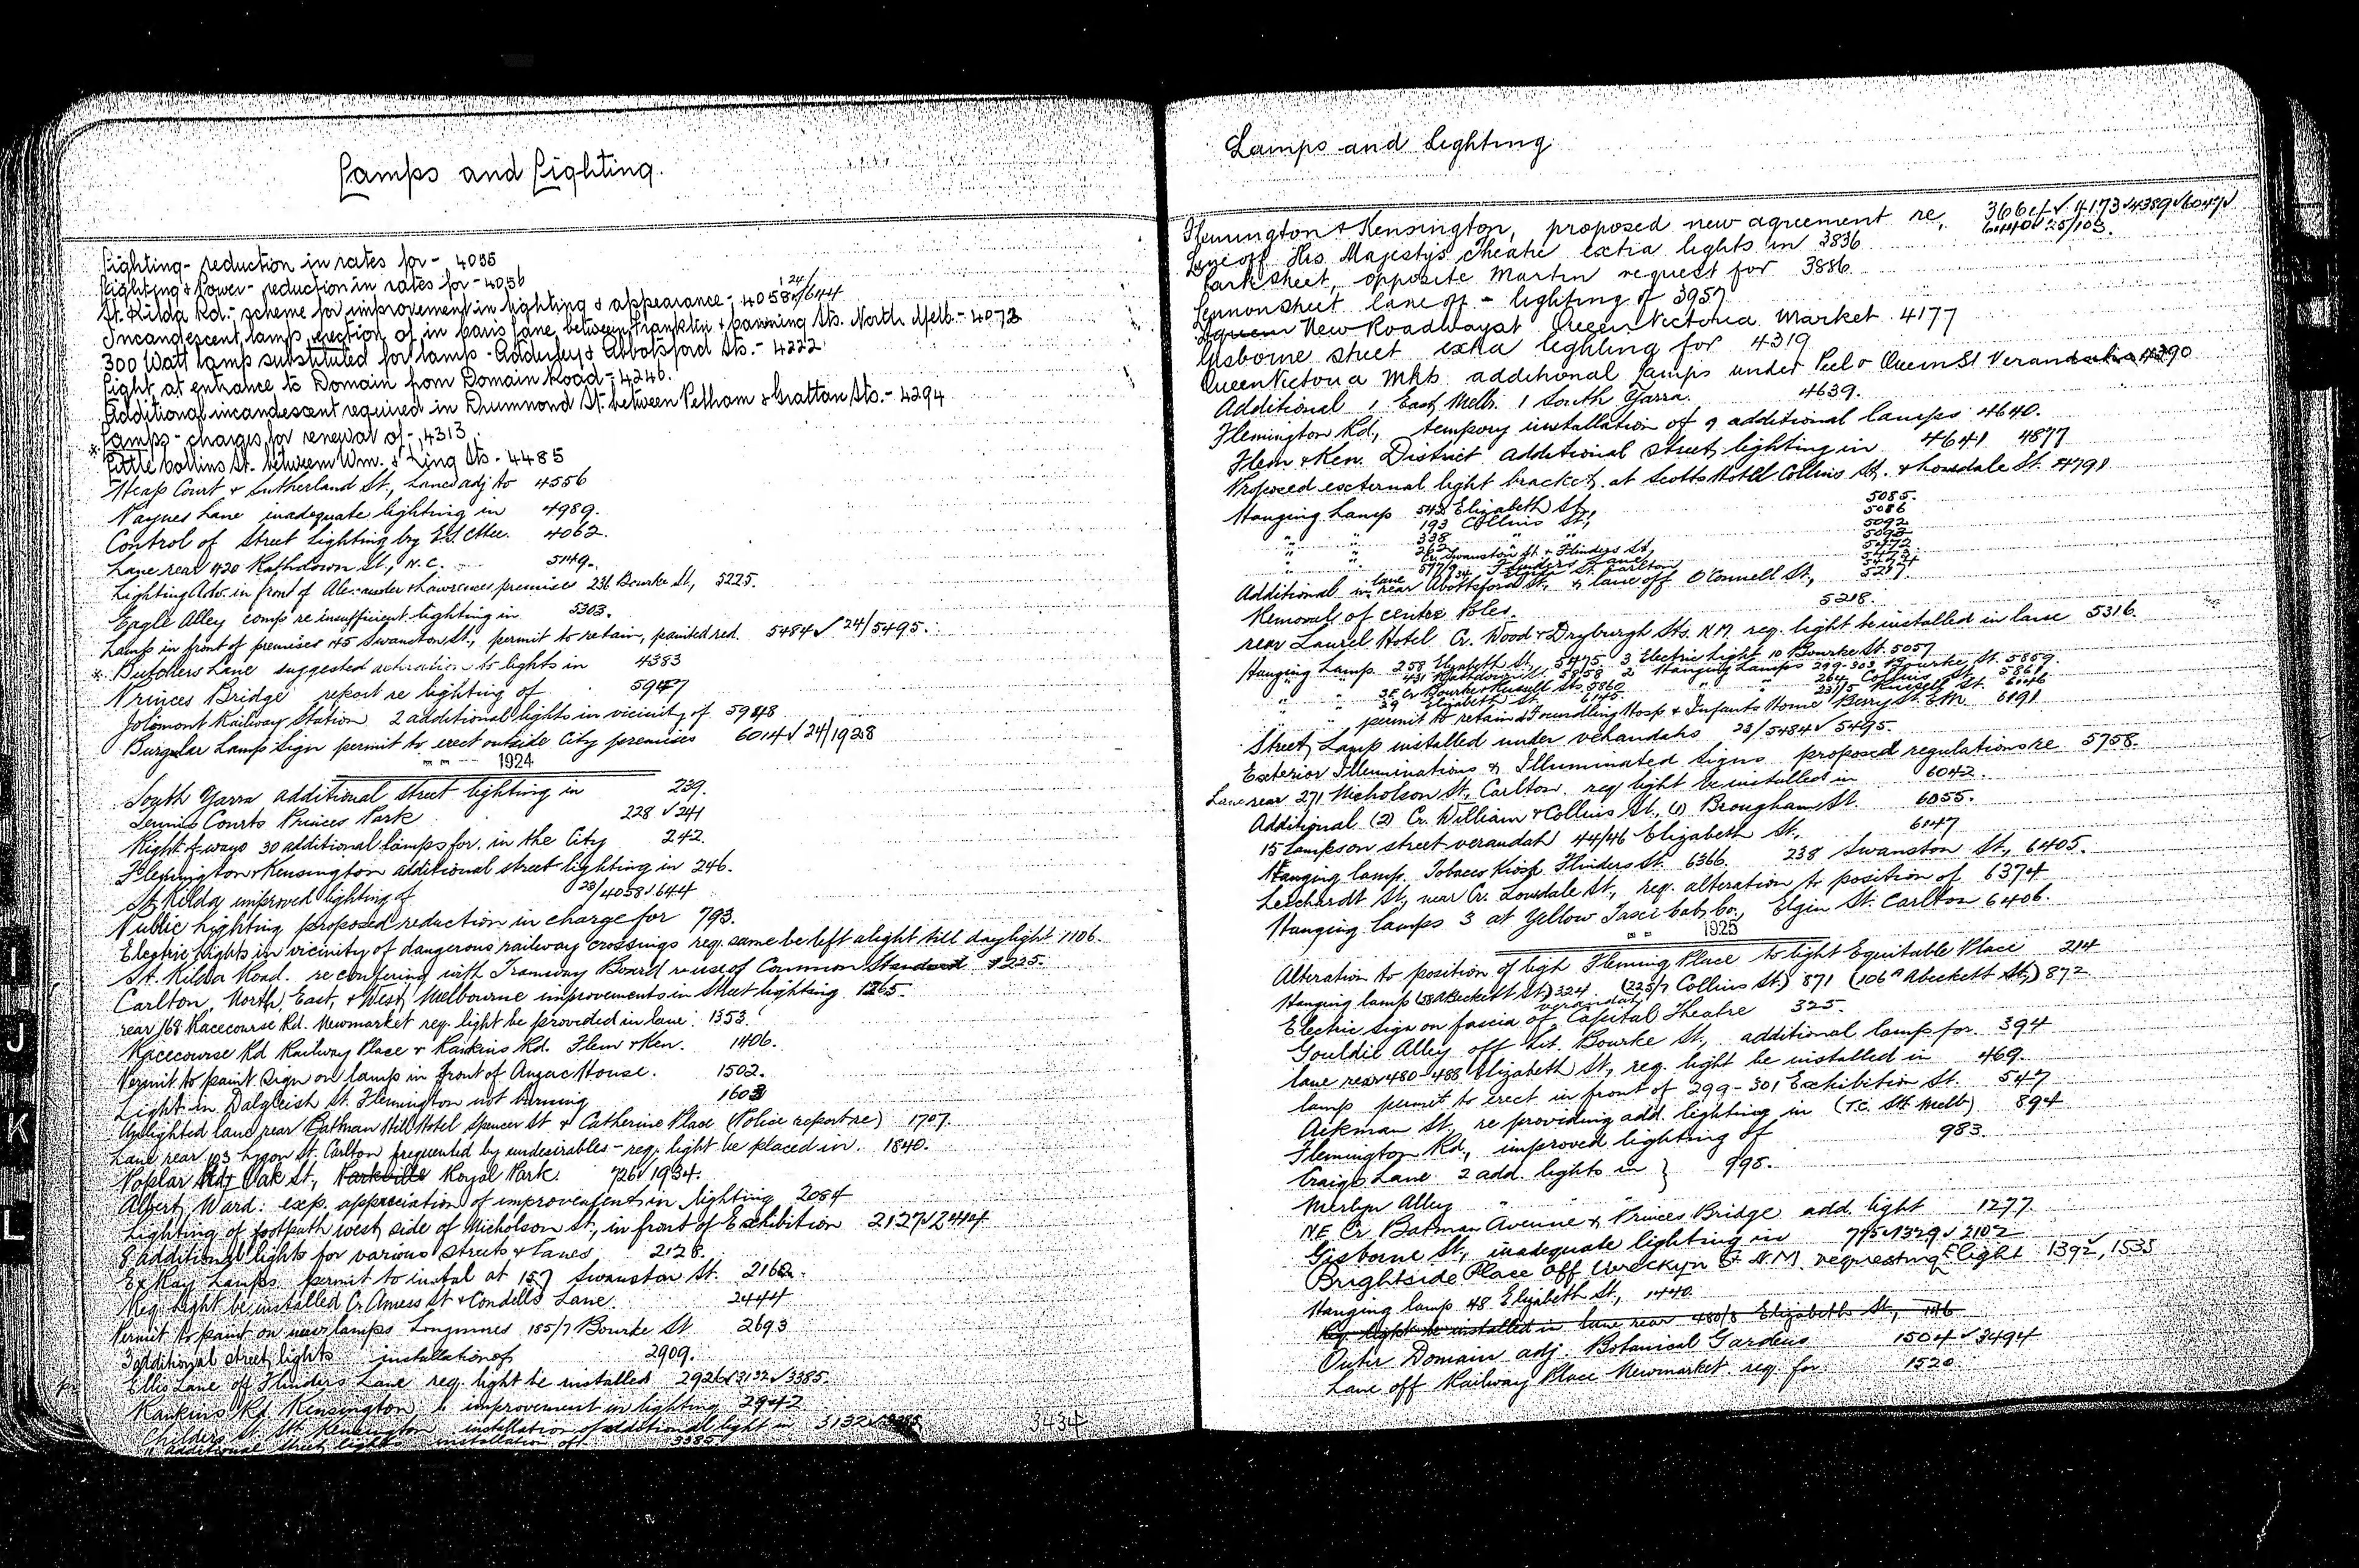 Lamps and Lighting.
Lighting - reduction in rates for - 4055
Lighting & Power - reduction in rates for - 4056
St. Kilda Rd. - scheme for improvement in lighting & appearance - 4058 ✓ 24/644
Incandescent lamp, erection of in Paris Lane, between Franklin & Canning Sts. North Melb. - 4072
300 Watt lamp substituted for lamp - Adderley & Abbotsford Sts. - 4222
Light at entrance to Domain from Domain Road - 4246.
Additional incandescent required in Drummond St. between Pelham & Grattan Sts. - 4294
Lamps - charges for renewal of - 4313
* Little Collins St. between Wm. & King Sts - 4485
Heap Court & Sutherland St, Lanes adj to 4556
Paynes Lane inadequate lighting in 4989.
Control of Street Lighting by E.S. Ctee. 4062.
Lane rear 420 Rathdown St, N.C. 5149.
Lighting Adv. in front of Alexander & Lawrences premises 236 Bourke St, 5225.
Eagle Alley comp re insufficient lighting in 5303.
Lamp in front of premises 45 Swanston St., permit to retain, painted red. 5484 ✓ 24/5495.
* Butchers Lane suggested alteration to lights in 4383
Princes Bridge report re lighting of 5947
Jolimont Railway Station 2 additional lights in vicinity of 5948
Burgular Lamp Sign permit to erect outside City premises 6014 ✓ 24/1928
1924
South Yarra additional street lighting in 239.
Tennis Courts Princes Park 228 ✓ 241
Right of ways 30 additional lamps for, in the City 242.
Flemington & Kensington additional street lighting in 246.
St Kilda improved lighting of 23/4058 ✓ 644
Public Lighting proposed reduction in charge for 793.
Electric lights in vicinity of dangerous railway crossings req. same be left alight till daylight 1106.
St. Kilda Road. re conferring with Tramway Board re use of Common Standard 1225.
Carlton, North, East, & West, Melbourne improvements in Street lighting 1265.
rear 168 Racecourse Rd. Newmarket req. light be provided in lane. 1353.
Racecourse Rd Railway Place & Rankins Rd. Flem & Ken. 1406.
Permit to paint sign on lamp in front of Anzac House. 1502.
Light in Dalgleish St. Flemington not burning 1603
Unlighted lane rear Batman Hill Hotel Spencer St & Catherine Place (Police report re) 1707.
Lane rear 103 Lygon St. Carlton frequented by undesirables - req. light be placed in. 1840.
Poplar Rd & Oak St., Parkville Royal Park. 726 ✓ 1934.
Albert Ward: exp. appreciation of improvement in lighting 2084
Lighting of footpath west side of Nicholson St., in front of Exhibition 2127 ✓ 2444
8 additional lights for various streets & lanes 2128.
Ex Ray Lamps. permit to instal at 157 Swanston St. 2162.
Req. light be installed Cr. Amess St & Condells Lane. 2444
Permit to paint on lamps Longmores 185/7 Bourke St 2693
3 additional street lights installation of 2909.
Ellis Lane off Flinders Lane req. light be installed 2926 ✓ 3132 ✓ 3385.
Rankins Rd. Kensington improvement in lighting 2942
Childers St. Kensington installation of additional light in 3132
additional street lights installation of 3385
3434
Lamps and Lighting
Flemington & Kensington, proposed new agreement re, 3664 ✓ 4173 ✓ 4389 ✓ 6047 ✓
6440 ✓ 25/103.
Lane off His Majesty's Theatre extra lights in 3836
Park Street, opposite Martin request for 3886
Lennon Street lane off - lighting of 3957
New Roadways at Queen Victoria Market 4177
Gisborne Street extra lighting for 4319
Queen Victoria Mkts additional lamps under Peel & Queen St Verandahs 4390
Additional 1 East Melb. 1 South Yarra. 4639.
Flemington Rd., tempory installation of 9 additional lamps 4640.
Flem & Ken. District additional street lighting in 4641 4877
Proposed external light brackets at Scotts Hotel Collins St. & Lonsdale St. 4791
Hanging Lamp 542 Elizabeth St, 5085.
" " 193 Collins St, 5086
" " 338 " " 5092
262 " " 5093
" " Cr. Swanston St & Flinders St, 5472
" " Flinders Lane 5473
St. Carlton 5474
Additional in lane rear Abbotsford St, & lane off O'Connell St., 5217.
Removal of Centre Poles. 5218
rear Laurel Hotel Cr. Wood & Dryburgh Sts. N.M. req. light be installed in lane 5316.
Hanging Lamp. 258 Elizabeth St, 5475. 3 Electric Light 10 Bourke St. 5057
" " 431 Rathdowne 5858 2 Hanging Lamps 299-303 Bourke St. 5859.
" " S.E. Cr Bourke & Russell Sts. 5860 " " 264 Collins St. 5861
" " 39 Elizabeth St. 6145. " " Russell St. 6146
" " permit to retain at Foundling Hosp & Infants Home Berry St. E.M. 6191
Street Lamp installed under verandahs 23/5484 ✓ 5495.
Exterior Illuminations & Illuminated Signs proposed regulations re 5758.
Lane rear 271 Nicholson St, Carlton req light be installed in 6042.
Additional (2) Cr. William & Collins St., (1) Brougham St. 6055.
15 Lamps on street verandah 44/46 Elizabeth St, 6147
Hanging lamp. Tobacco Kiosk Flinders St. 6366. 238 Swanston St., 6405.
Leichardt St, near Cr. Lonsdale St, req. alteration to position of 6374
Hanging lamps 3 at Yellow Taxi Cab Co., Elgin St. Carlton 6406.
1925
Alteration to position of ligh Fleming Place to light Equitable Place 214
Hanging lamp (58 A'Beckett St) 324 (225/7 Collins St.) 871 (106A Abeckett St,) 872
Electric sign on fascia of verandah Capital Theatre 325.
Gouldie Alley off Lit. Bourke St, additional lamp for. 394
Lane rear 480-488 Elizabeth St, req. light be installed in 469.
Lamp permit to erect in front of 299-301 Exhibition St. 547
Aikman St, re providing add. lighting in (T.C. Sth Melb) 894
Flemington Rd, improved lighting of 983.
Craigs Lane 2 add. lights in } 998.
Merlyn Alley " " "
N.E. Cr Batman Avenue & Princes Bridge add. light 1277.
Gisborne St., inadequate lighting in 745 ✓ 1329 ✓ 2102
Brightside Place off Wreckyn St N.M. requesting E light 1392, 1535
Hanging lamp 48 Elizabeth St, 1440.
Req. light be installed in lane rear 480/8 Elizabeth St,
Outer Domain adj. Botanical Gardens 1504 ✓ 3494
Lane off Railway Place Newmarket. req. for. 1520
I
J
K
L